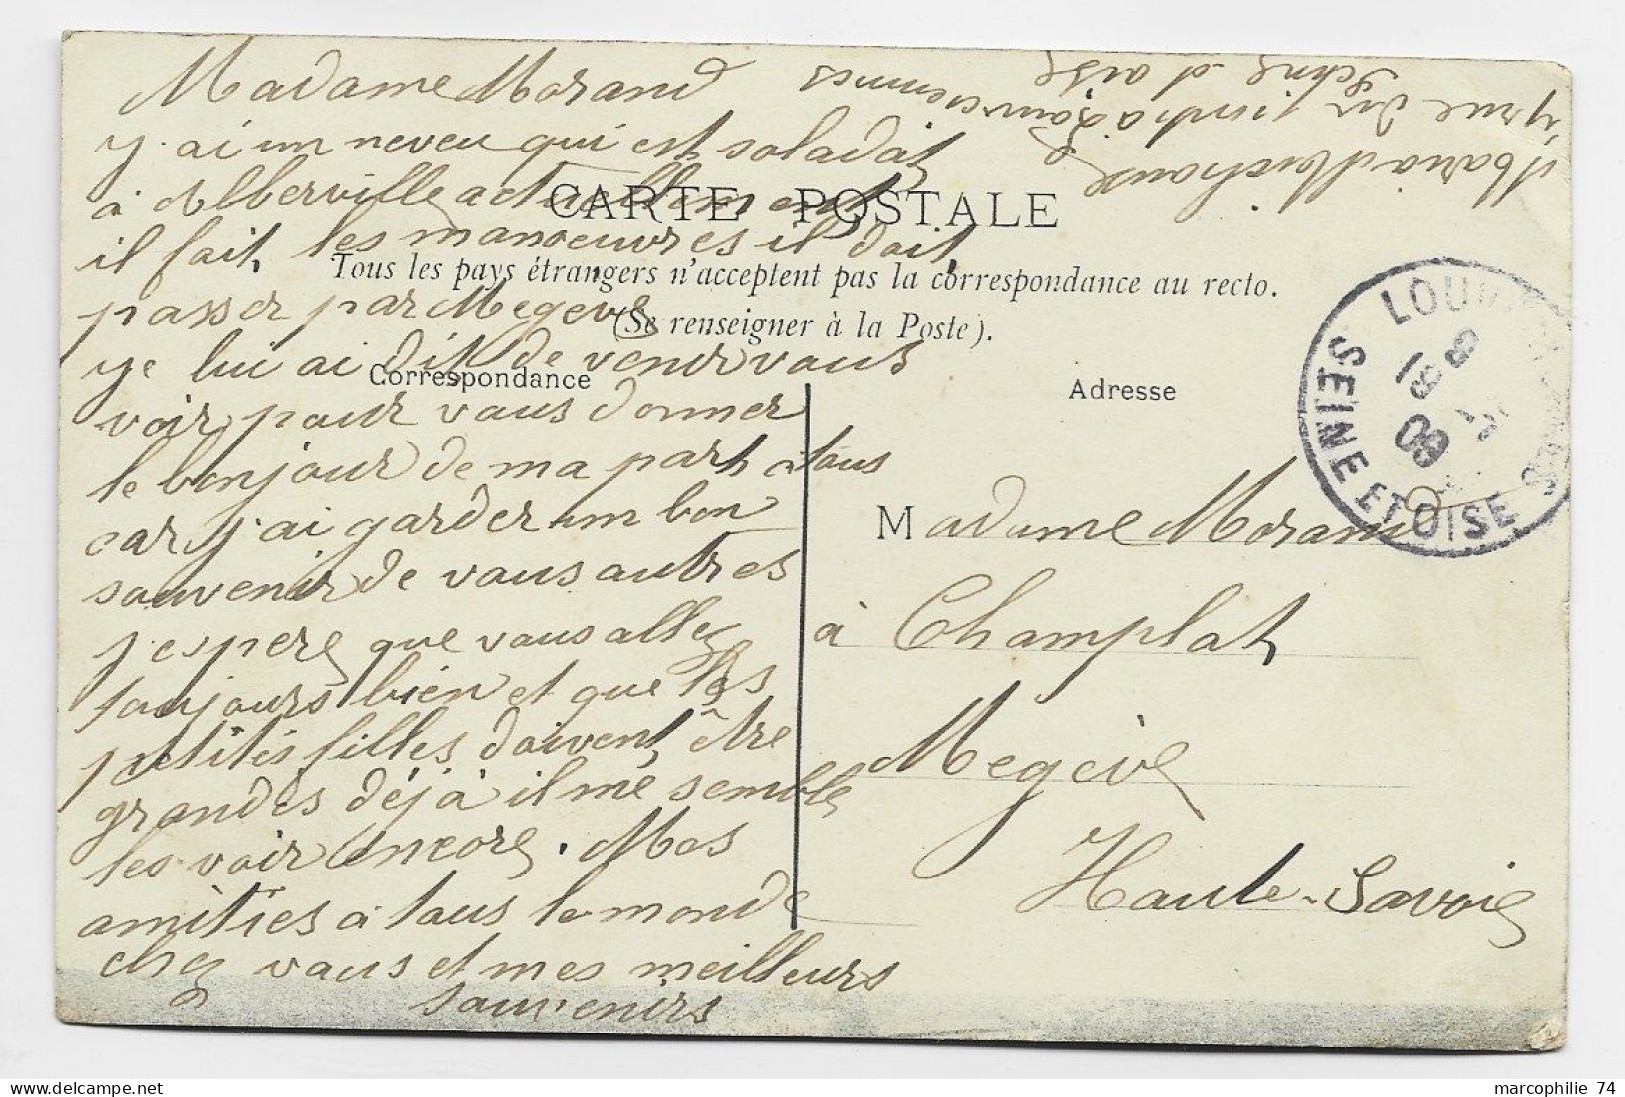 Madame Morand
y. ai un neveu qui est soladat
à Alberville actuellement
CARTE POSTALE
il fait les manoeuvres il doit
Tous les pays étrangers n'acceptent pas la correspondance au recto.
passer par Megeve
(Se renseigner à la Poste).
ye lui ai dit de venir vous
Correspondance
voir pour vous donner
le bonjour de ma part a tous
car j'ai garder un bon
souvenir de vous autres
j'espere que vous allez
toujours bien et que les
petites filles doivent être
grandes déjà il me semble
les voir encore. Mes
amities à tous le monde
chez vous et mes meilleurs
souvenirs
Maria
rue du
à Louvres
Seine et oise
LOUVRES
SEINE ET OISE
09
Adresse
Madame Morand
à Champlat
Megève
Haute-Savoie
marcophilie 74